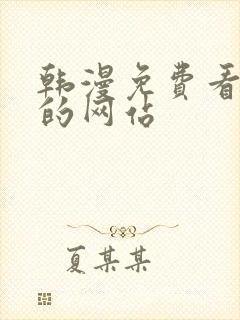 韩漫免费看
的网站
夏某某